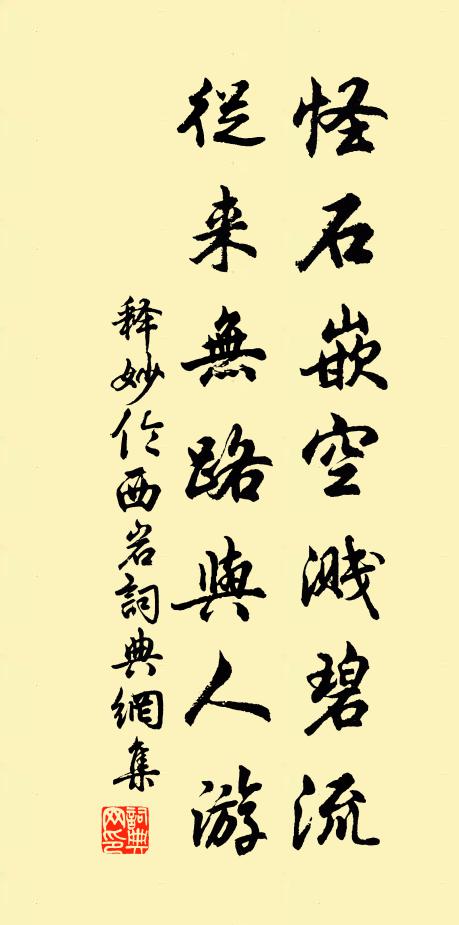 怪石嵌空溅碧流
從来無路與人游
释妙伦西岩詞典網集
詞典网印